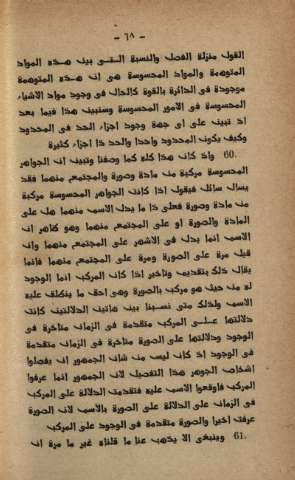 - ٦٨ -
القول منزلة الفصل والنسبة التى بين هذه المواد
المتوهمة والمواد المحسوسة هى ان هذه المتوهمة
موجودة فى الدائرة بالقوة كالحال فى وجود مواد الاشياء
المحسوسة فى الامور المحسوسة وسنبين هذا فيما بعد
اذ تبين على اى جهة وجود اجزاء الحد فى المحدود
وكيف يكون المحدود واحدا والحد ذا اجزاء كثيرة
60. واذ كان هذا كله كما وصفنا وتبين ان الجواهر
المحسوسة مركبة من مادة وصورة والمجتمع منهما فقد
يسال سائل فيقول اذا كانت الجواهر المحسوسة مركبة
من مادة وصورة فعلى ذا ما يدل الاسم منهما هل على
المادة والصورة او على المجتمع منهما وهو ظاهر ان
الاسم انما يدل فى الاشهر على المجتمع منهما وان
قيل مرة على الصورة ومرة على المجتمع منهما فانما
يقال ذلك بتقديم وتاخير اذا كان المركب انما الوجود
له من حيث هو مركب بالصورة وهى احق ما ينطلق عليه
الاسم ولذلك متى نسبنا بين هاتين الدلالتين كانت
دلالتها على المركب متقدمة فى الزمان متاخرة فى
الوجود ودلالتها على الصورة متاخرة فى الزمان متقدمة
فى الوجود اذ كان ليس من شان الجمهور ان يفصلوا
اشخاص الجوهر هذا التفصيل لان الجمهور انما عرفوا
المركب فاوقعوا الاسم عليه فتقدمت الدلالة على المركب
فى الزمان على الدلالة على الصورة بالاسم لان الصورة
عرفت اخيرا والصورة متقدمة فى الوجود على المركب
61. وينبغى الا يذهب عنا ما قلناه غير ما مرة ان